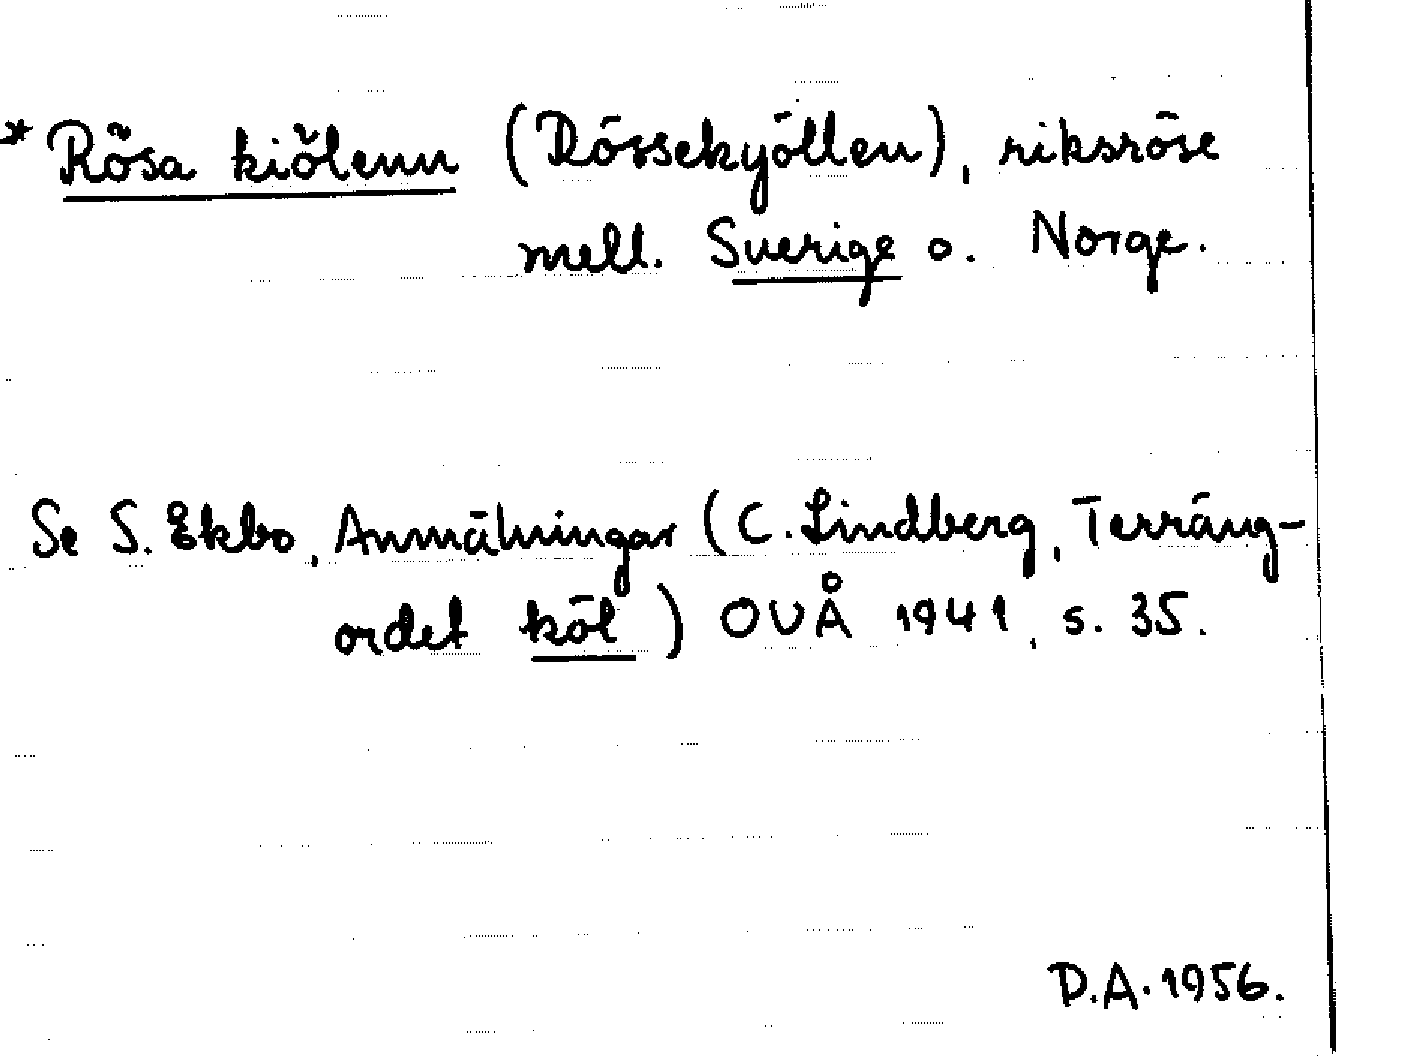 * Rösa kiölenn (Rössekyöllen), riksröse
mell. Sverige o. Norge.
Se S. Ekbo, Anmälningar (C. Lindberg, Terräng-
ordet köl) OUÅ 1941, s. 35.
D.A. 1956.